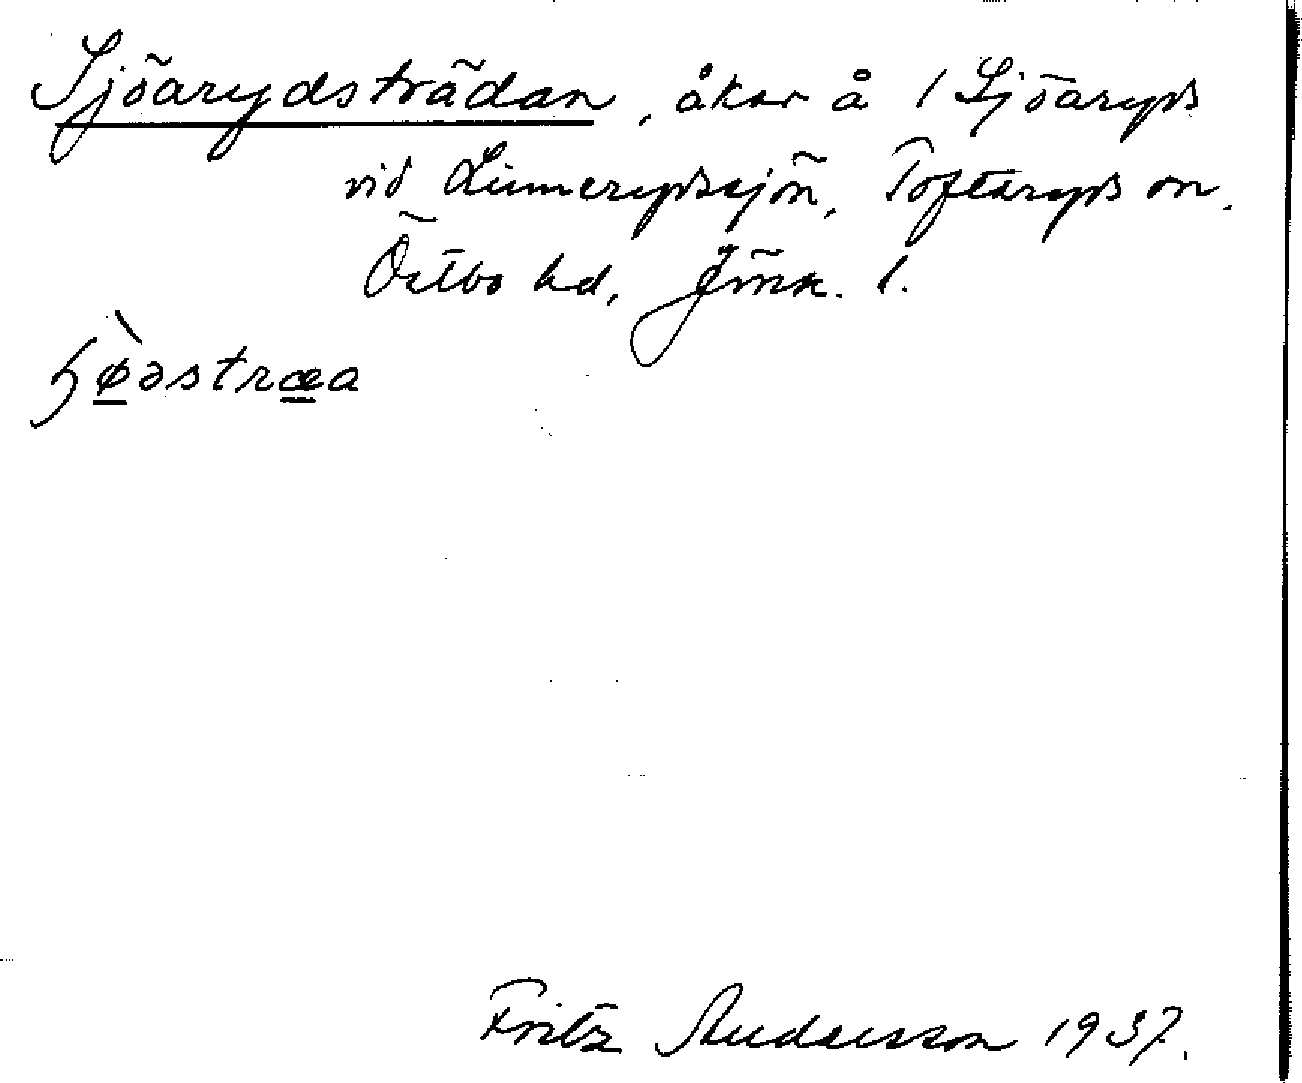 Sjöarydsträdan, åker å 1 Sjöaryds
vid Linnerydssjön, Toftaryds sn.
Östbo hd, Jönk. l.
ɧø̀əstræa
Fritz Andersson 1937.